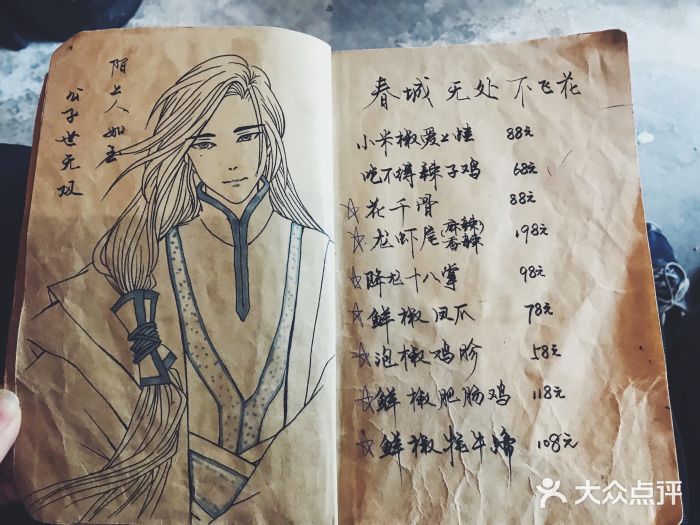 陌上人如玉
公子世无双
春城无处不飞花
小米椒爱上蛙 88元
吃不得辣子鸡 68元
☆花千骨 88元
☆龙虾尾(麻辣 香辣) 198元
☆降龙十八掌 98元
☆鲜椒凤爪 78元
☆泡椒鸡胗 58元
☆鲜椒肥肠鸡 118元
☆鲜椒牦牛蹄 108元
大众点评